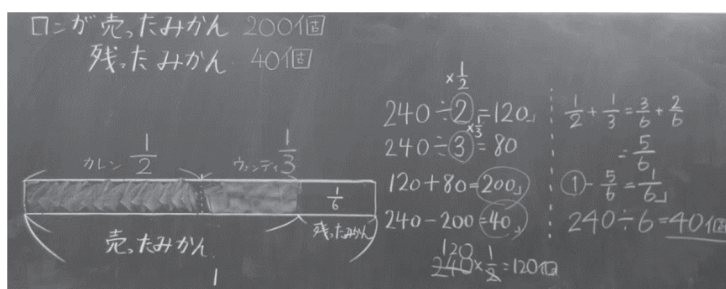 ロンが売ったみかん 200個
残ったみかん 40個
カレン 1/2
ウェンディ 1/3
1/6
売ったみかん
残ったみかん
1
×1/2
240÷2=120
×1/3
240÷3=80
120+80=200
240-200=40
120
240×1/2=120個
1/2+1/3=3/6+2/6
=5/6
①-5/6=1/6
240÷6=40個